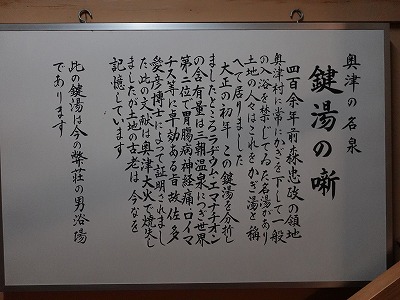 奥津の名泉
鍵湯の噺
四百余年前森忠政の領地
奥津村に常にかぎを下して一般
の入浴を禁じてゐた名湯があり
土地の人はこれをかぎ湯と稱
へて居りました
大正の初年、この鍵湯を分析し
ましたところラヂウム・エマナチオン
の含有量は三朝温泉につぎ世界
第二位で胃腸病神経痛・ロイマ
チス等に卓効ある旨故佐多
愛彦博士によって証明されまし
た此の文献は奥津大火で焼失し
ましたが土地の古老は今なを
記憶しています
此の鍵湯は今の弊荘の男浴場
であります